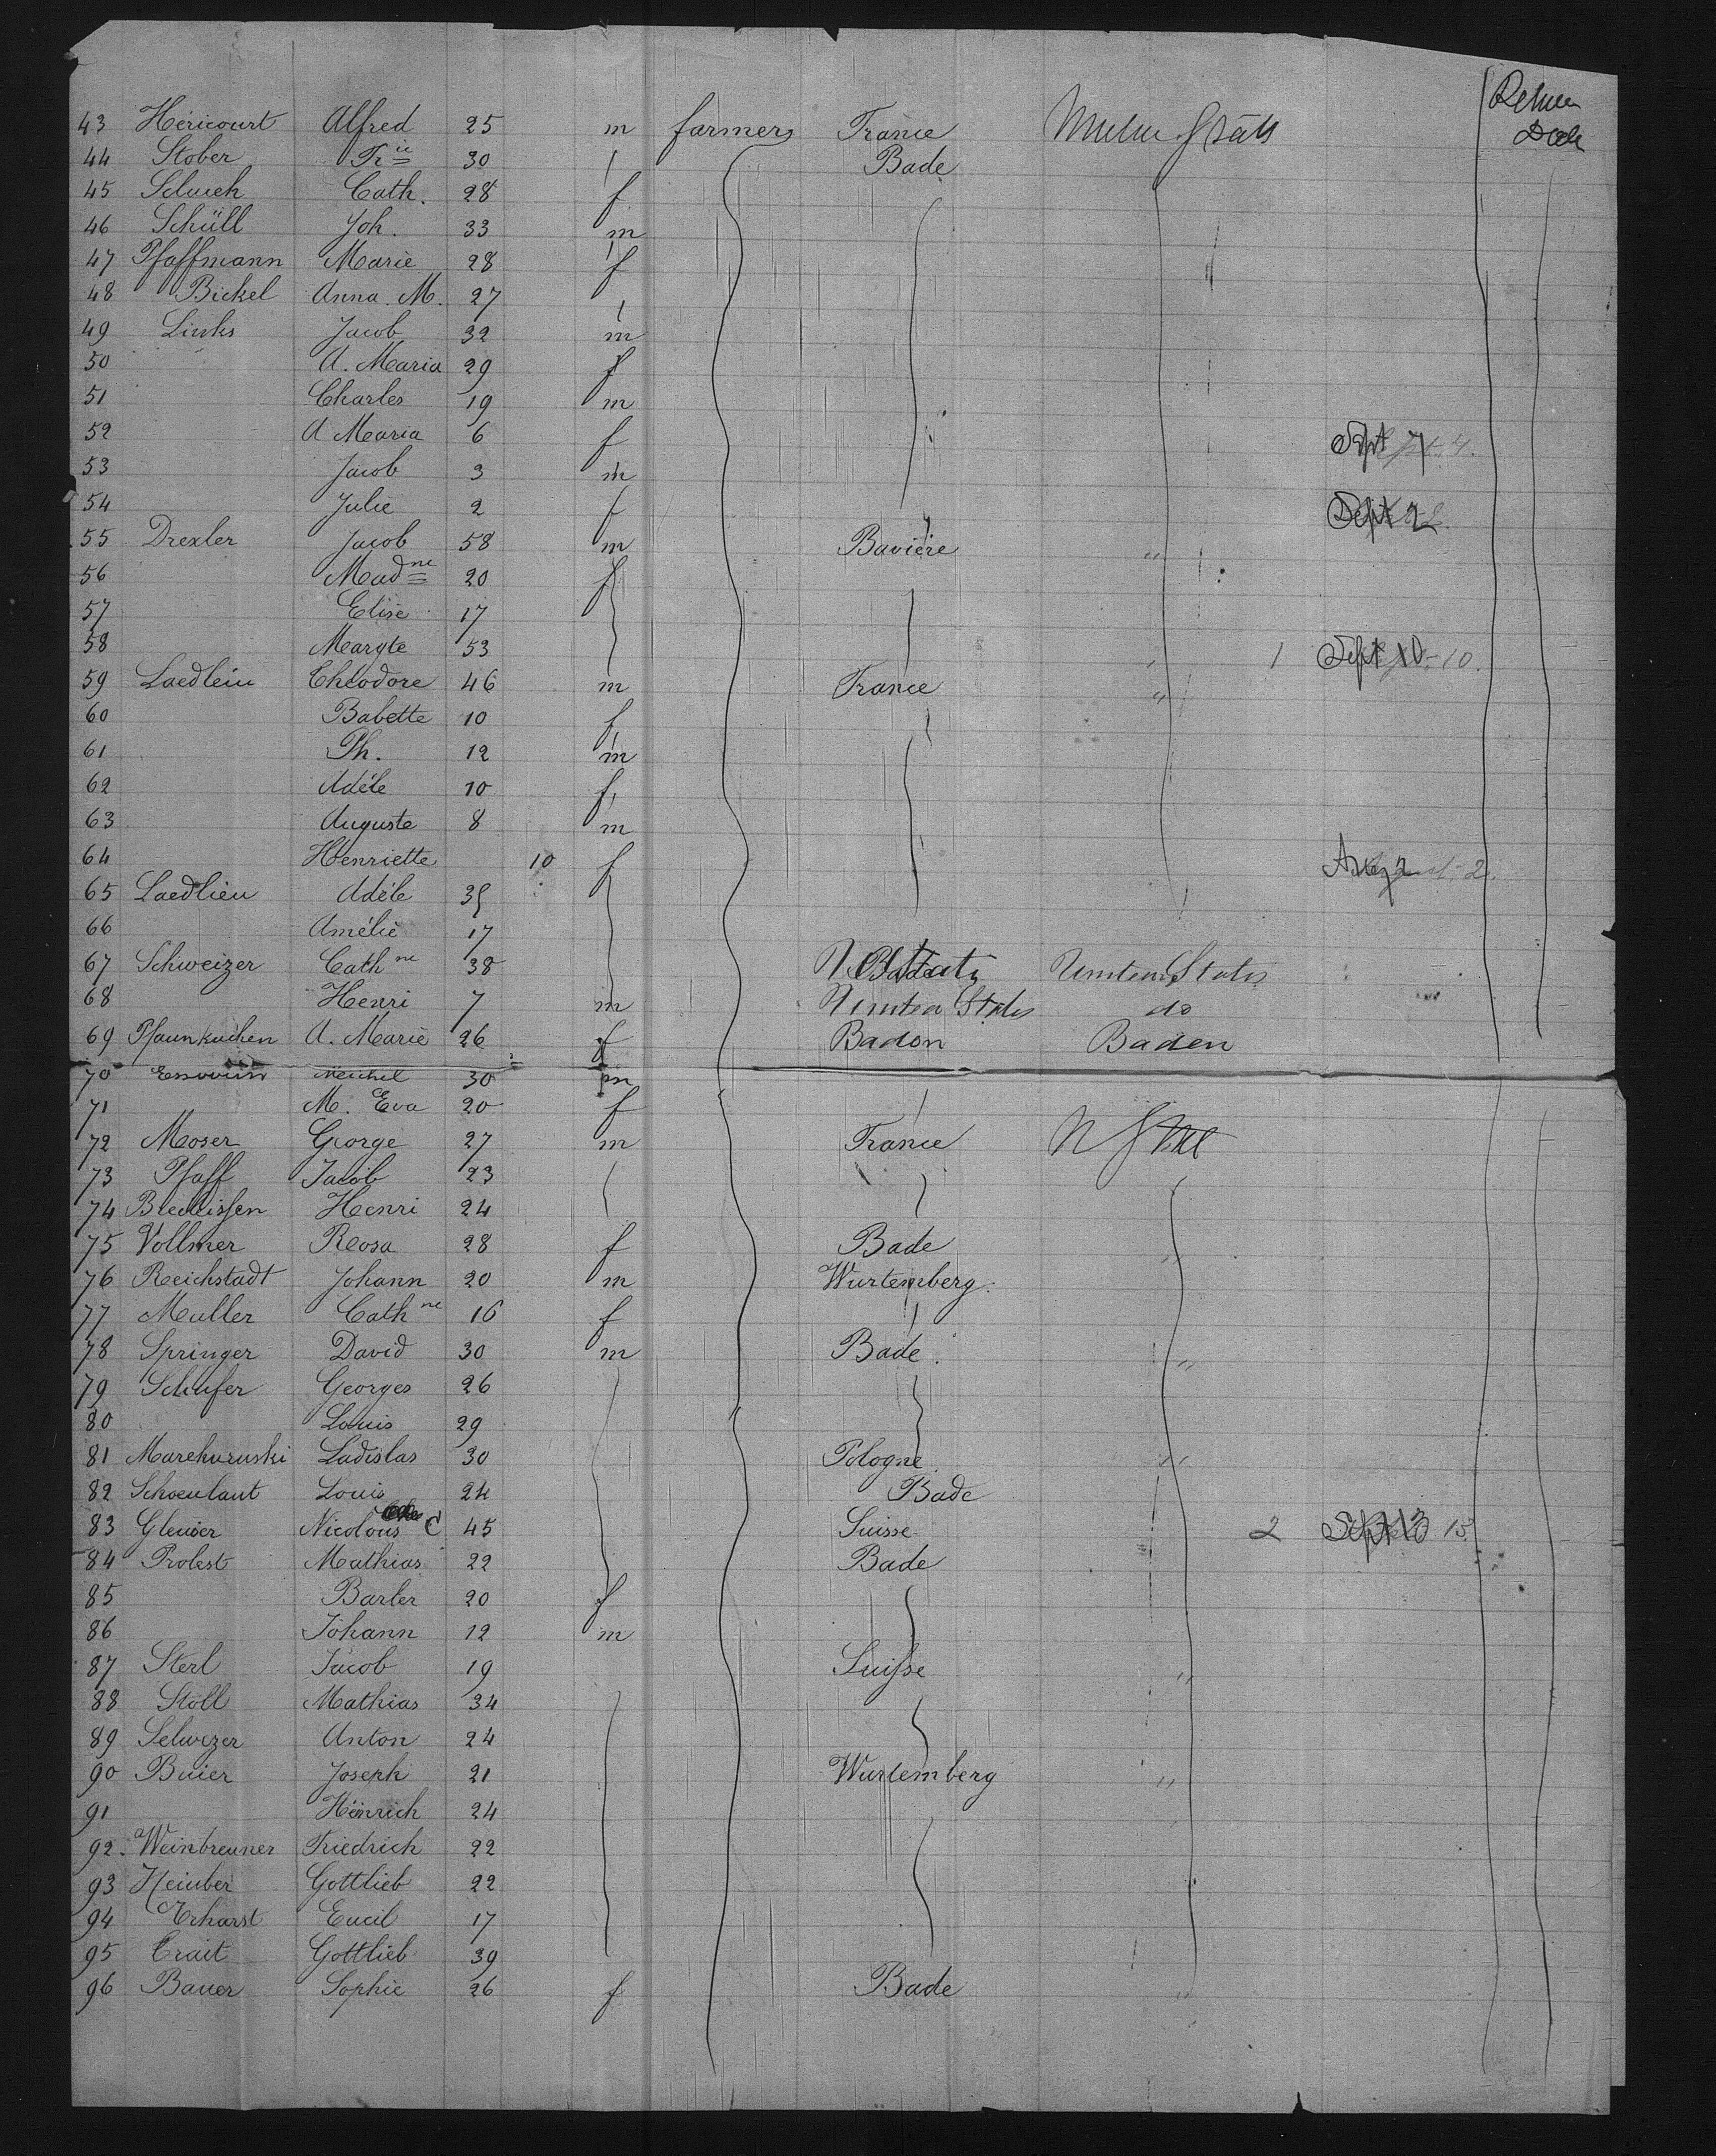 43 Héricourt Alfred 25 m farmers France
44 Stober Fr ie 30 Bade
45 Schuck Cath. 28 f
46 Schüll Joh. 33 m
47 Pfaffmann Marie 28 f
48 Bickel Anna. M. 27
49 Links Jacob 32 m
50 A. Maria 29 f
51 Charles 19 m
52 A Maria 6 f Sept 4.
53 Jacob 3 m
54 Julie 2 f Sept 2
55 Drexler Jacob 58 m Bavière "
56 Mad ne 20 f
57 Elise 17
58 Maryte 53 1 Sept 10 - 10.
59 Laedlein Théodore 46 m France "
60 Babette 10 f
61 Ph. 12 m
62 Adèle 10 f
63 Auguste 8 m
64 Henriette 10 f Aug 2 2.
65 Laedlieu Adèle 35
66 Amélie 17
67 Schweizer Cath ne 38 United States
68 Henri 7 m United States do
69 Pfaunkuchen A. Marie 26 f Baden Baden
70 Michel 30 m
71 M. Eva 20 f
72 Moser George 27 m France
73 Pfaff Jacob 23
74 Henri 24
75 Vollmer Rosa 28 f Bade "
76 Reichstadt Johann 20 m Wurtemberg.
77 Muller Cath ne 16 f
78 Springer David 30 m Bade. "
79 Schufer Georges 26
80 Louis 29
81 Marchuruski Ladislas 30 Pologne. "
82 Schoenlaut Louis 24 Bade
83 Gleuser Nicolous C 45 Suisse 2 Sept 13
84 Probst Mathias 22 Bade
85 Barber 20 f
86 Johann 12 m
87 Sterl Jacob 19 Suisse "
88 Stoll Mathias 34
89 Selwezer Anton 24
90 Buier Joseph 21 Wurtemberg "
91 Heinrich 24
92. Weinbreuner Friedrich 22
93 Heinber Gottlieb 22
94 Erharst Emil 17
95 Crait Gottlieb 39
96 Bauer Sophie 26 f Bade "